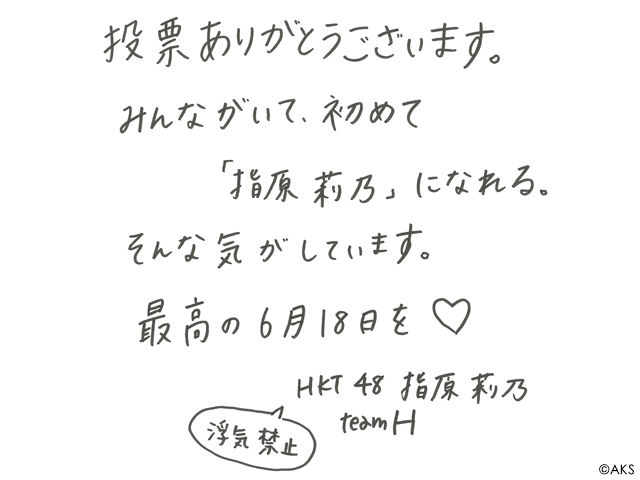 投票ありがとうございます。
みんながいて、初めて
「指原 莉乃」になれる。
そんな気がしています。
最高の6月18日を♡
HKT 48 指原 莉乃
team H
浮気禁止
©AKS